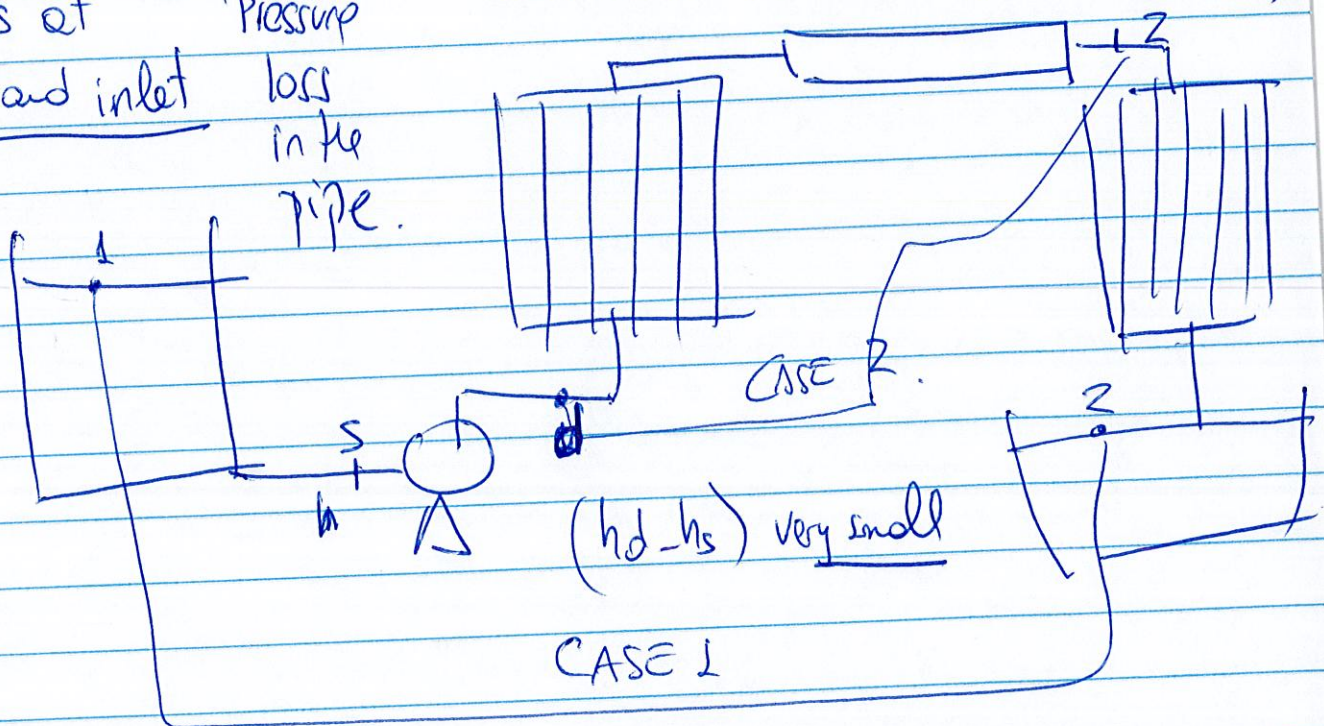 s at Pressure
and inlet loss
in the
pipe.
2
1
CASE 2.
2
S
d
h
(hd-hs) very small
CASE 1